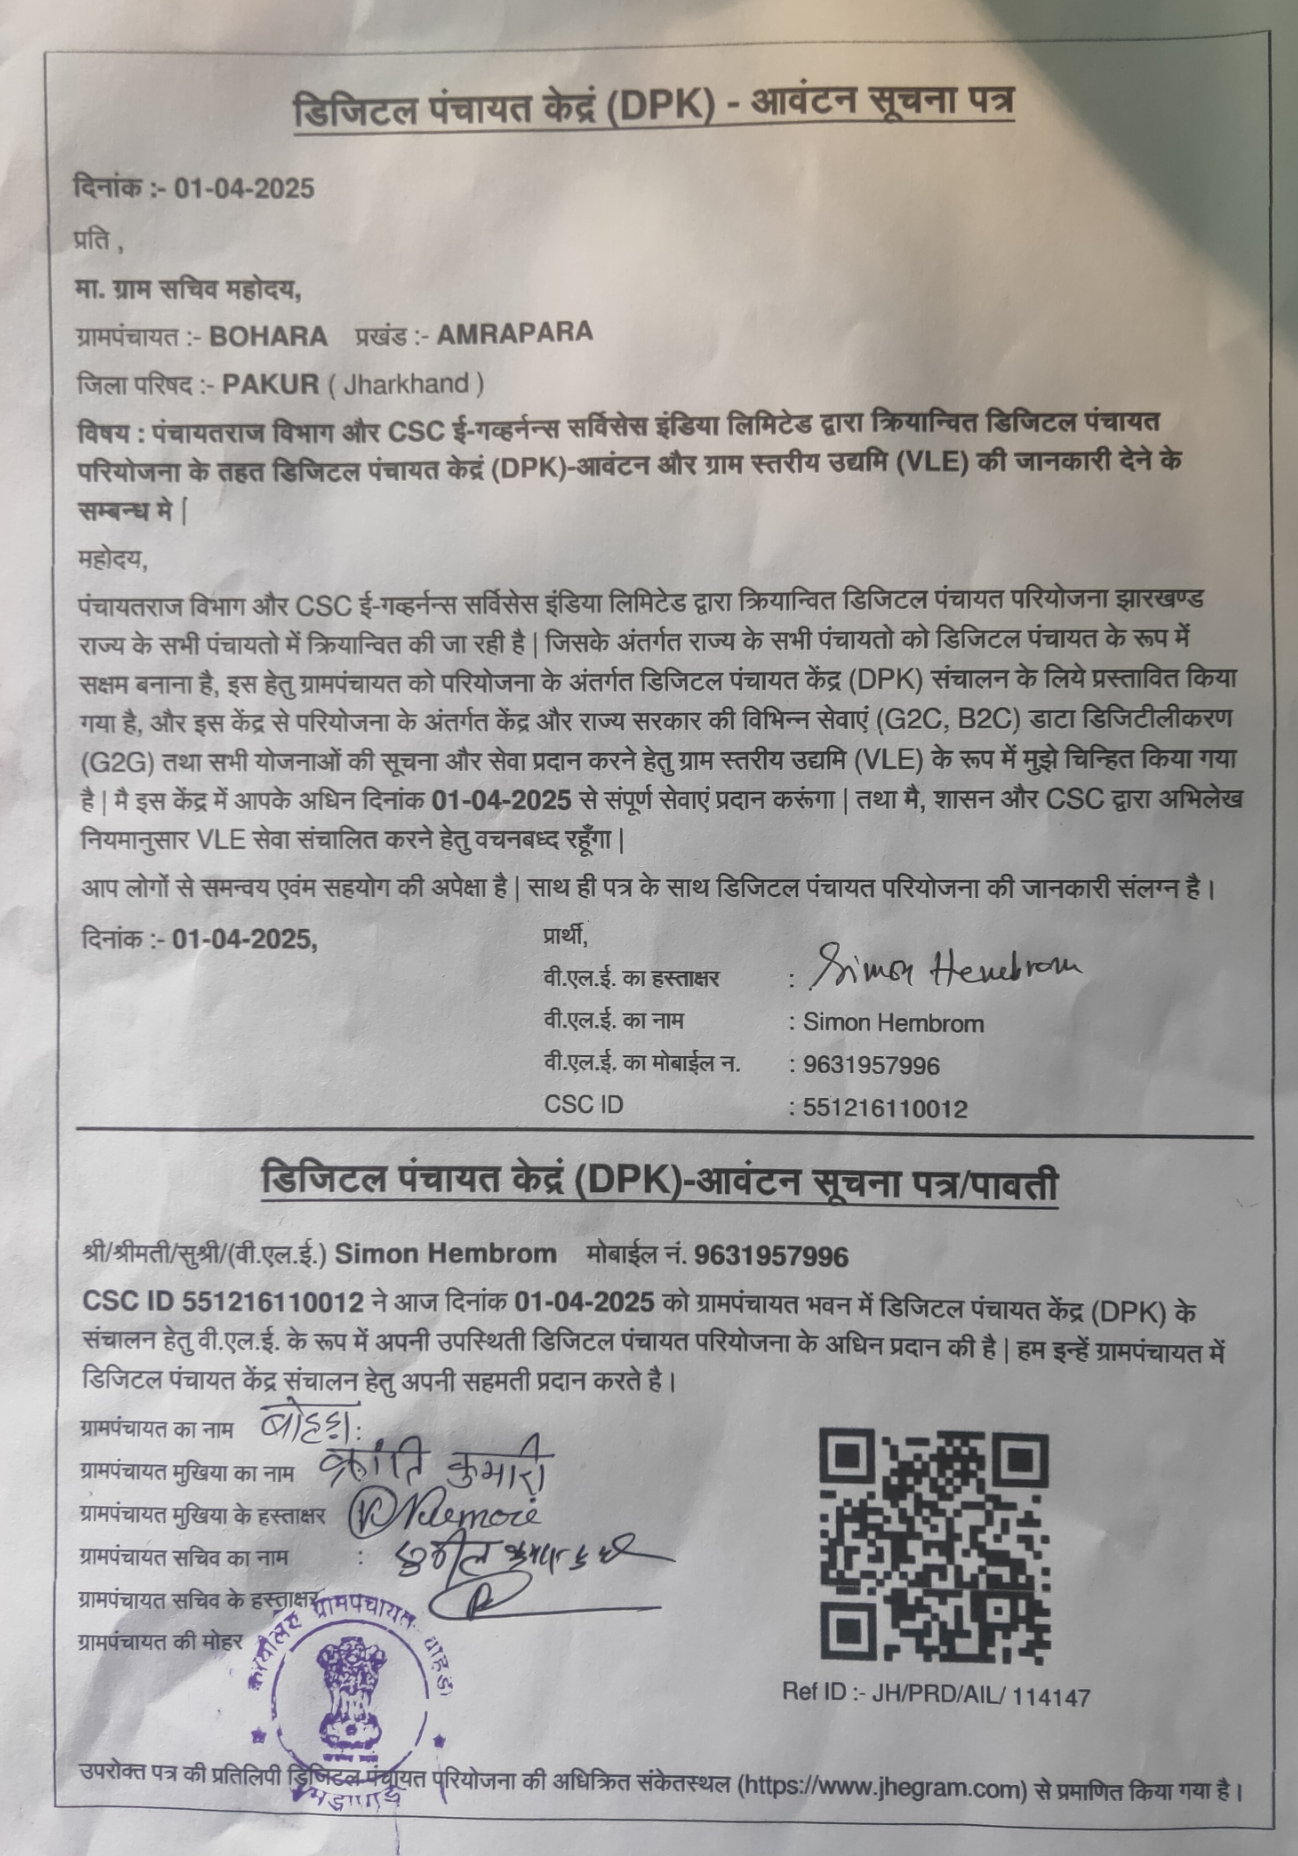 डिजिटल पंचायत केद्रं (DPK) - आवंटन सूचना पत्र
दिनांक :- 01-04-2025
प्रति ,
मा. ग्राम सचिव महोदय,
ग्रामपंचायत :- BOHARA प्रखंड :- AMRAPARA
जिला परिषद :- PAKUR ( Jharkhand )
विषय : पंचायतराज विभाग और CSC ई-गव्हर्नन्स सर्विसेस इंडिया लिमिटेड द्वारा क्रियान्वित डिजिटल पंचायत
परियोजना के तहत डिजिटल पंचायत केद्रं (DPK)-आवंटन और ग्राम स्तरीय उद्यमि (VLE) की जानकारी देने के
सम्बन्ध मे |
महोदय,
पंचायतराज विभाग और CSC ई-गव्हर्नन्स सर्विसेस इंडिया लिमिटेड द्वारा क्रियान्वित डिजिटल पंचायत परियोजना झारखण्ड
राज्य के सभी पंचायतो में क्रियान्वित की जा रही है | जिसके अंतर्गत राज्य के सभी पंचायतो को डिजिटल पंचायत के रूप में
सक्षम बनाना है, इस हेतु ग्रामपंचायत को परियोजना के अंतर्गत डिजिटल पंचायत केंद्र (DPK) संचालन के लिये प्रस्तावित किया
गया है, और इस केंद्र से परियोजना के अंतर्गत केंद्र और राज्य सरकार की विभिन्न सेवाएं (G2C, B2C) डाटा डिजिटीलीकरण
(G2G) तथा सभी योजनाओं की सूचना और सेवा प्रदान करने हेतु ग्राम स्तरीय उद्यमि (VLE) के रूप में मुझे चिन्हित किया गया
है | मै इस केंद्र में आपके अधिन दिनांक 01-04-2025 से संपूर्ण सेवाएं प्रदान करूंगा | तथा मै, शासन और CSC द्वारा अभिलेख
नियमानुसार VLE सेवा संचालित करने हेतु वचनबध्द रहूँगा |
आप लोगों से समन्वय एवंम सहयोग की अपेक्षा है | साथ ही पत्र के साथ डिजिटल पंचायत परियोजना की जानकारी संलग्न है।
दिनांक :- 01-04-2025,
प्रार्थी,
वी.एल.ई. का हस्ताक्षर : Simon Hembrom
वी.एल.ई. का नाम : Simon Hembrom
वी.एल.ई. का मोबाईल न. : 9631957996
CSC ID : 551216110012
डिजिटल पंचायत केद्रं (DPK)-आवंटन सूचना पत्र/पावती
श्री/श्रीमती/सुश्री/(वी.एल.ई.) Simon Hembrom मोबाईल नं. 9631957996
CSC ID 551216110012 ने आज दिनांक 01-04-2025 को ग्रामपंचायत भवन में डिजिटल पंचायत केंद्र (DPK) के
संचालन हेतु वी.एल.ई. के रूप में अपनी उपस्थिती डिजिटल पंचायत परियोजना के अधिन प्रदान की है | हम इन्हें ग्रामपंचायत में
डिजिटल पंचायत केंद्र संचालन हेतु अपनी सहमती प्रदान करते है।
ग्रामपंचायत का नाम :
ग्रामपंचायत मुखिया का नाम क्रांति कुमारी
ग्रामपंचायत मुखिया के हस्ताक्षर
ग्रामपंचायत सचिव का नाम :
ग्रामपंचायत सचिव के हस्ताक्षर
ग्रामपंचायत की मोहर
कार्यालय ग्रामपंचायत
Ref ID :- JH/PRD/AIL/ 114147
उपरोक्त पत्र की प्रतिलिपी डिजिटल पंचायत परियोजना की अधिक्रित संकेतस्थल (https://www.jhegram.com) से प्रमाणित किया गया है।